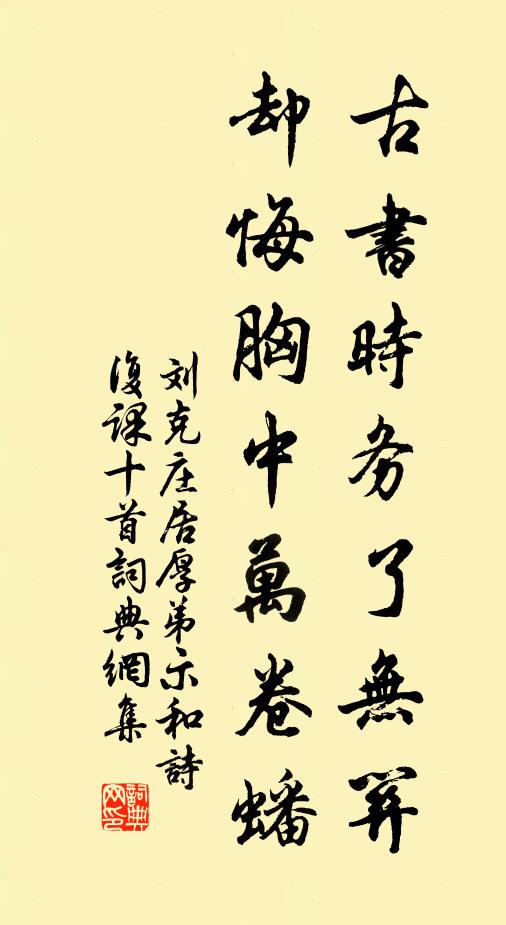 古書時务了無關
却悔胸中萬卷蟠
刘克庄居厚弟示和詩
復課十首詞典網集
詞典
网印